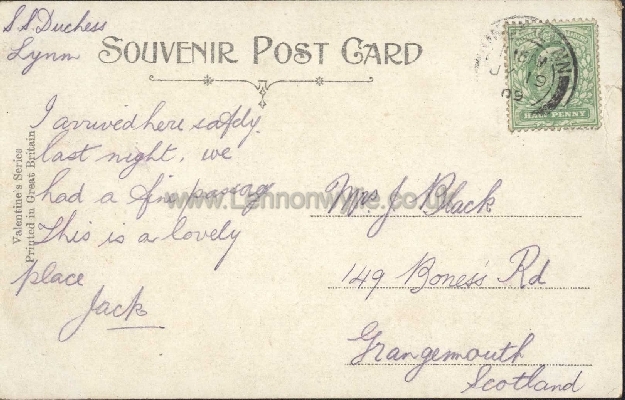 S.S. Duchess
Lynn
SOUVENIR POST CARD
I arrived here safely
last night, we
had a fine passag
This is a lovely
place
Jack
Valentine's Series
Printed in Great Britain
www.Lennonwylie.co.uk
Mrs J. Black
149 Boness's Rd
Grangemouth
Scotland
HALF PENNY
09